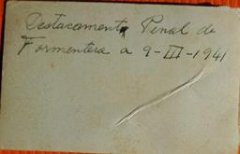 Destacamento Penal de
Formentera a 9-III-1941